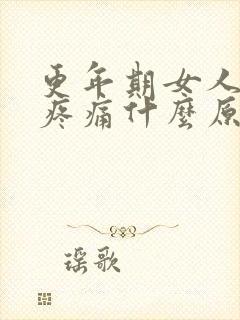 更年期女人
疼痛什麼原
瑶歌